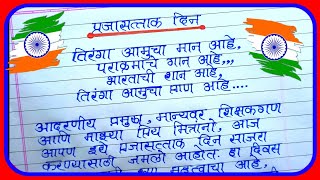 प्रजासत्ताक दिन
तिरंगा आमुचा मान आहे,
पराक्रमाचे गान आहे,,,
भारताची शान आहे,
तिरंगा आमुचा प्राण आहे....
आदरणीय प्रमुख, मान्यवर, शिक्षकगण
आणि माझ्या प्रिय मित्रांनो, आज
आपण इथे प्रजासत्ताक दिन साजरा
करण्यासाठी जमलो आहोत. हा दिवस
महत्वाचा आहे,